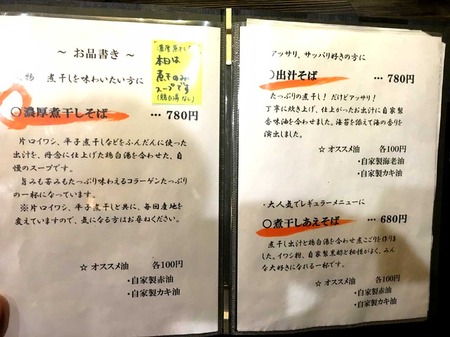 ～ お品書き ～
"濃厚煮干し"
本日は
煮干のみ
スープです
(鶏白湯なし)
物 煮干しを味わいたい方に
〇濃厚煮干しそば ・・・ 780円
片口イワシ、平子煮干しなどをふんだんに使った
出汁を、丹念に仕上げた鶏白湯を合わせた、自
慢のスープです。
旨みも苦みもたっぷり味わえるコラーゲンたっぷり
の一杯になっています。
※片口イワシ、平子煮干しと共に、毎回産地を
変えていますので、気になる方はお尋ねください。
☆ オススメ油 各100円
・自家製赤油
・自家製カキ油
アッサリ、サッパリ好きの方に
〇出汁そば ・・・ 780円
たっぷりの煮干し！ だけどアッサリ！
丁寧に炊き上げ、仕上がったお出汁に自家製
香味油を合わせました。海苔を添えて海の香りを
演出しました。
☆ オススメ油 各100円
・自家製海老油
・自家製カキ油
・大人気でレギュラーメニューに
〇煮干しあえそば ・・・ 680円
煮干し出汁と鶏白湯を合わせ煮こごりを作りま
した。イワシ粉、自家製黒酢と相性がよく、みん
な大好きになれる一杯です。
☆ オススメ油 各100円
・自家製赤油
・自家製カキ油